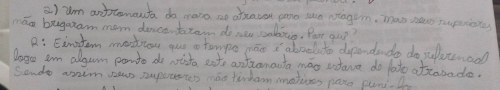 2) Um astronauta da nasa se atrasou para sua viagem. Mas seus superiores
não brigaram nem descontaram de seu salário. Por quê?
R: Einstem mostrou que o tempo não é absoluto dependendo do referencial
logo em algum ponto de vista este astronauta não estava de fato atrasado.
Sendo assim seus superiores não tinham motivos para puni-lo.